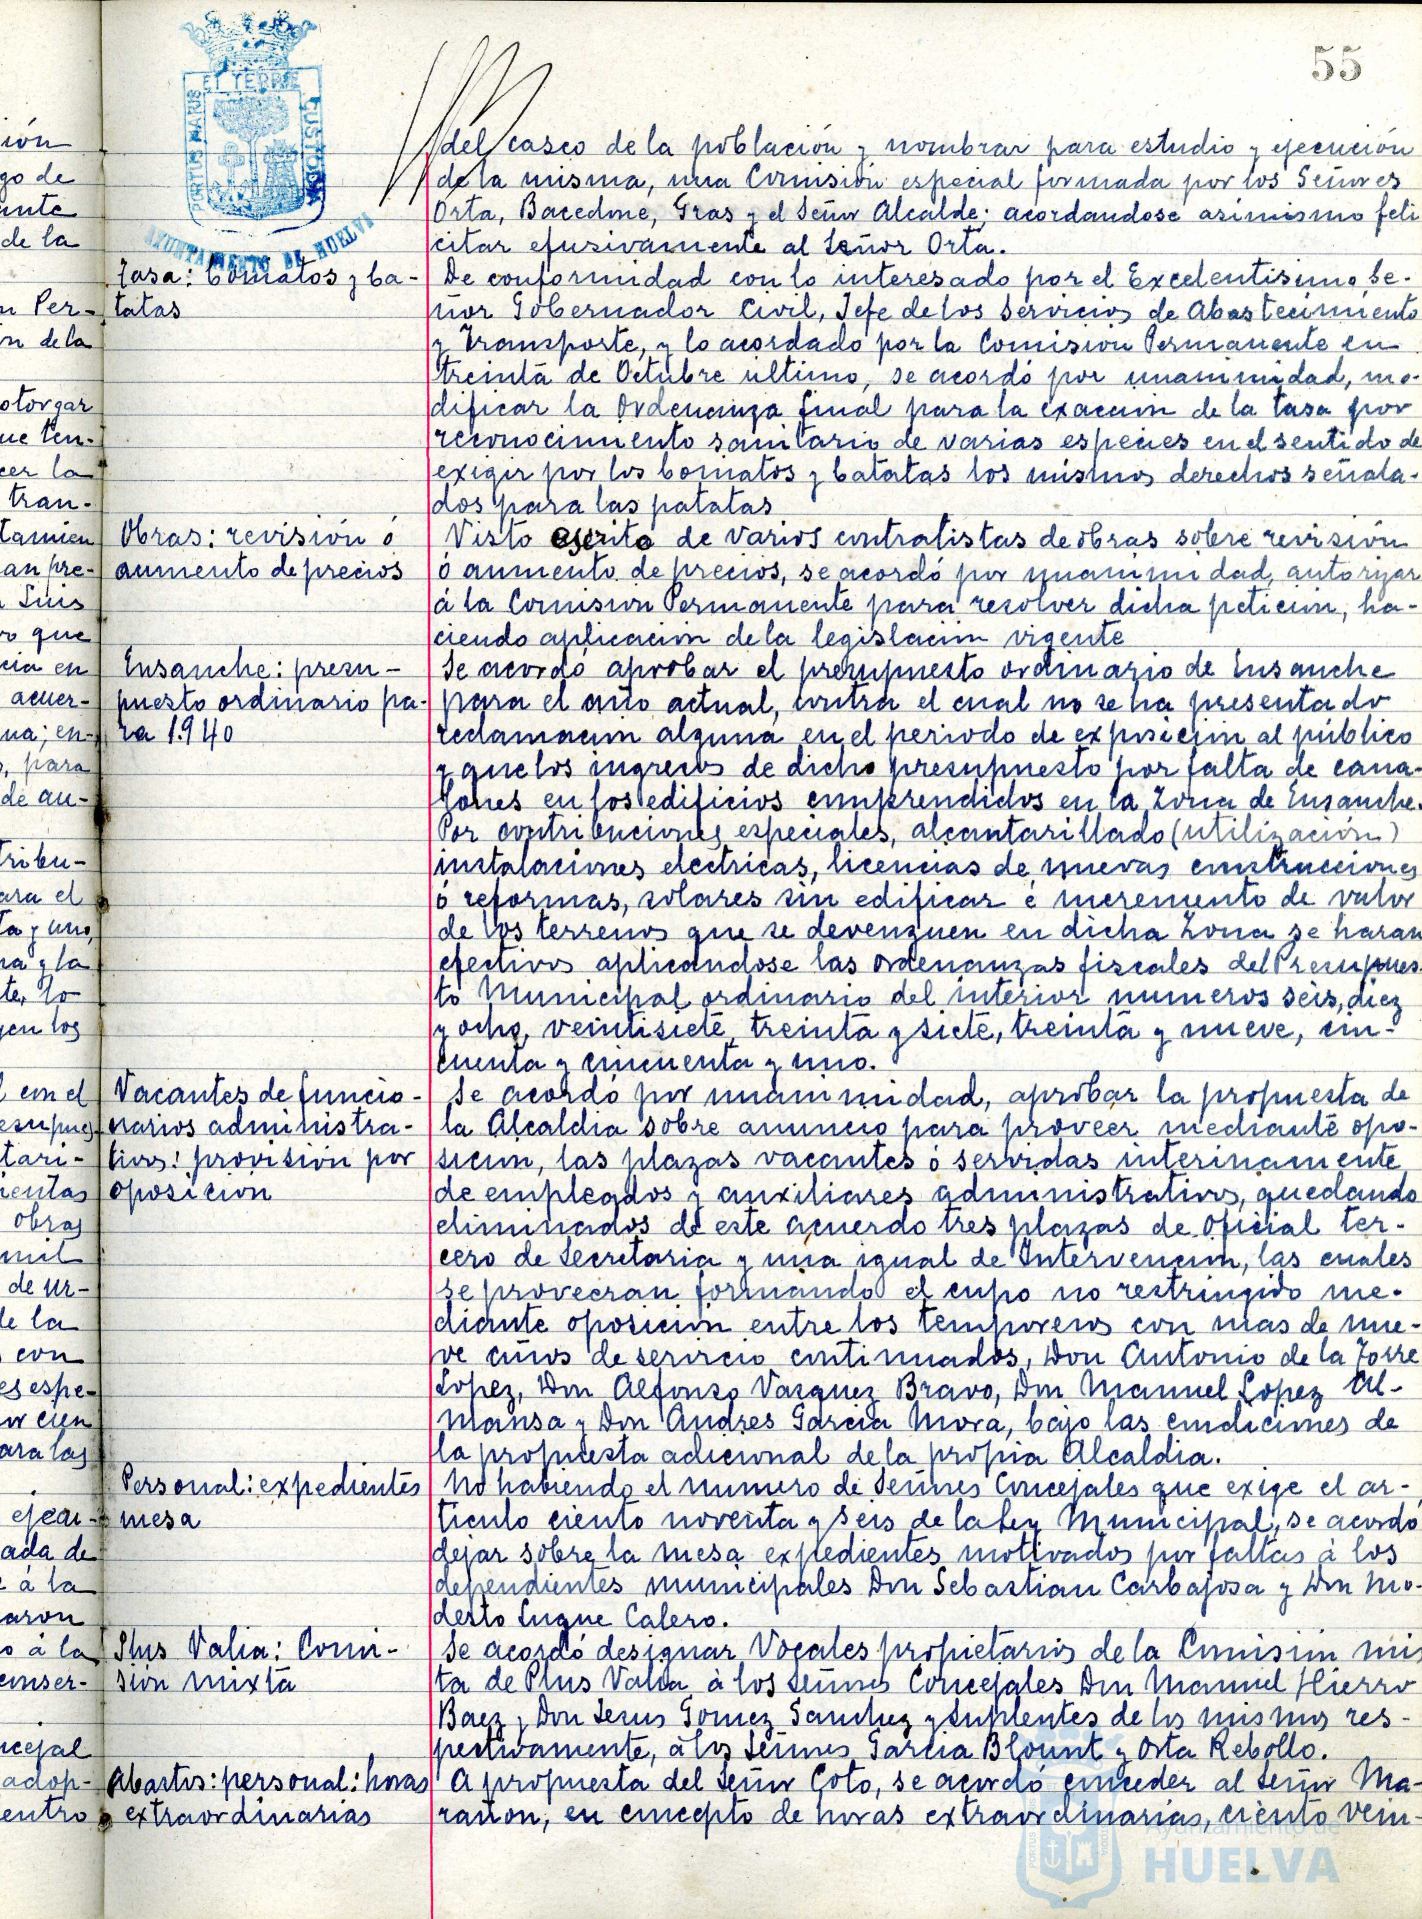 55
PORTUS MARIS ET TERRE CUSTODIA
AYUNTAMIENTO DE HUELVA
del casco de la población y nombrar para estudio y ejecución
de la misma, una Comisión especial formada por los Señores
Orta, Bacedoné, Gras y el Señor Alcalde; acordandose asimismo feli
citar efusivamente al Señor Orta.
Tasa: tomatos y ba-
tatas
De conformidad con lo interesado por el Excelentisimo Se-
ñor Gobernador Civil, Jefe de los Servicios de Abastecimiento
y Transporte, y lo acordado por la Comisión Permanente en
treinta de Octubre ultimo, se acordó por unanimidad, mo-
dificar la Ordenanza final para la exacción de la tasa por
reconocimiento sanitario de varias especies en el sentido de
exigir por los tomatos y batatas los mismos derechos señala-
dos para las patatas
Obras: revisión ó
aumento de precios
Visto escrito de varios contratistas de obras sobre revisión
ó aumento de precios, se acordó por unanimidad, autorizar
á la Comision Permanente para resolver dicha petición, ha-
ciendo aplicación de la legislación vigente
Ensanche: presu-
puesto ordinario pa-
ra 1.940
Se acordó aprobar el presupuesto ordinario de Ensanche
para el año actual, contra el cual no se ha presentado
reclamación alguna en el periodo de exposición al público
y que los ingresos de dicho presupuesto por falta de cana-
lones en los edificios comprendidos en la Zona de Ensanche.
Por contribuciones especiales, alcantarillado (utilización)
instalaciones electricas, licencias de nuevas construcciones
ó reformas, solares sin edificar é incremento de valor
de los terrenos que se devenguen en dicha Zona se haran
efectivos aplicandose las ordenanzas fiscales del Presupues-
to Municipal ordinario del interior numeros seis, diez
y ocho, veintisiete, treinta y siete, treinta y nueve, cin-
cuenta y cincuenta y uno.
Vacantes de funcio-
narios administra-
tivos: provisión por
oposicion
Se acordó por unanimidad, aprobar la propuesta de
la Alcaldia sobre anuncio para proveer mediante opo-
sicion, las plazas vacantes ó servidas interinamente
de empleados y auxiliares administrativos, quedando
eliminados de este acuerdo tres plazas de oficial ter-
cero de Secretaria y una igual de Intervencion, las cuales
se proveeran formando el cupo no restringido me-
diante oposición entre los temporeros con mas de nue-
ve años de servicio continuados, Don Antonio de la Torre
Lopez, Don Alfonso Vazquez Bravo, Don Manuel Lopez Al-
mansa y Don Andres Garcia Mora, bajo las condiciones de
la propuesta adicional de la propia Alcaldia.
Personal: expedientes
mesa
No habiendo el numero de Señores Concejales que exige el ar-
ticulo ciento noventa y seis de la Ley Municipal, se acordó
dejar sobre la mesa expedientes motivados por faltas á los
dependientes municipales Don Sebastian Carbajosa y Don Mo-
desto Luque Calero.
Plus Valia: Comi-
sión mixta
Se acordó designar Vocales propietarios de la Comisión mix
ta de Plus Valia á los Señores Concejales Don Manuel Hierro
Baez y Don Jesus Gomez Sanchez y suplentes de los mismos res-
pectivamente, á los Señores Garcia Blount y Orta Rebollo.
Abastos: personal: horas
extraordinarias
A propuesta del Señor Coto, se acordó conceder al Señor Ma-
rañon, en concepto de horas extraordinarias, ciento vein-
Ayuntamiento de
HUELVA